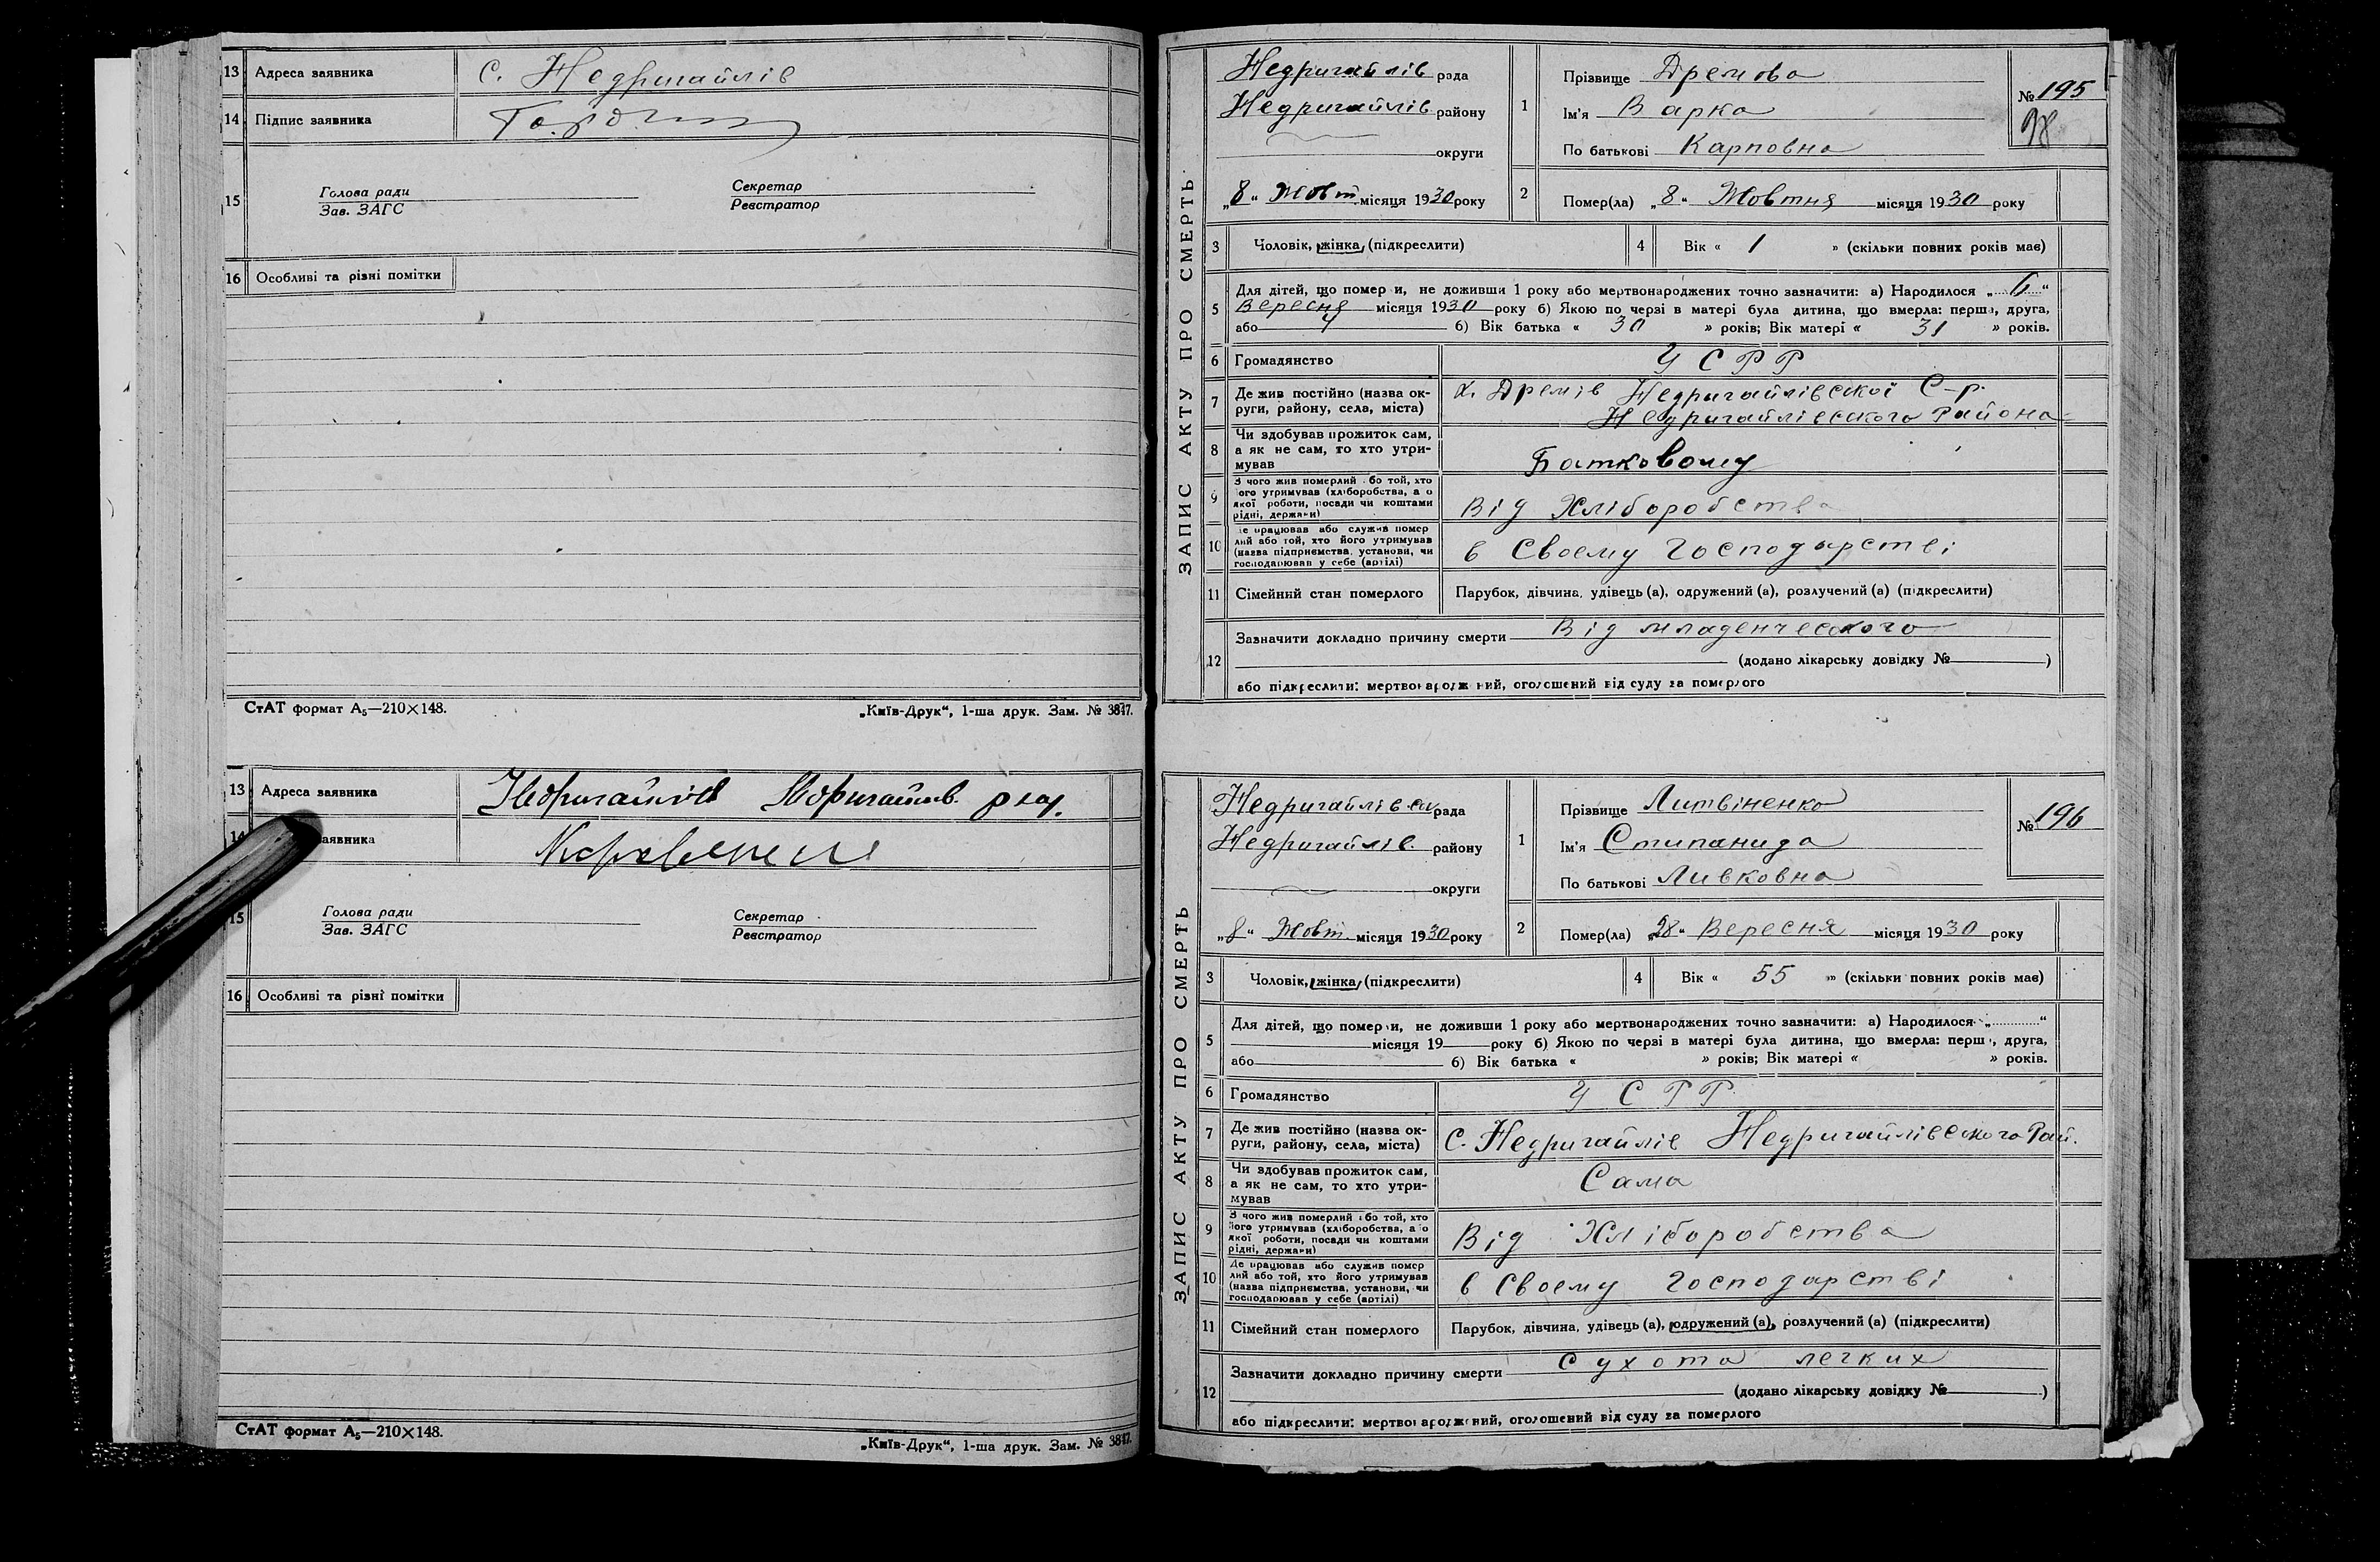 13 Адреса заявника С. Недригайлів
14 Підпис заявника
15 Голова ради Секретар
Зав. ЗАГС Реєстратор
16 Особливі та різні помітки
СтАТ формат А₅—210×148. „Київ-Друк“, 1-ша друк. Зам. № 3847.
13 Адреса заявника
14 аявника
15 Голова ради Секретар
Зав. ЗАГС Реєстратор
16 Особливі та різні помітки
СтАТ формат А₅—210×148. „Київ-Друк“, 1-ша друк. Зам. № 3847.
ЗАПИС АКТУ ПРО СМЕРТЬ
Недригайлів рада
Недригайлів району
округи
„8“ Жовт місяця 1930 року
1 Прізвище Дремова
Ім'я Варка
По батькові Карповна
№ 195
98
2 Помер(ла) „8“ Жовтня місяця 1930 року
3 Чоловік, жінка, (підкреслити) 4 Вік « 1 » (скільки повних років має)
5 Для дітей, що помер и, не доживши 1 року або мертвонароджених точно зазначити: а) Народилося „6“
Вересня місяця 1930 року б) Якою по черзі в матері була дитина, що вмерла: перша, друга,
або 4 б) Вік батька « 30 » років; Вік матері « 31 » років.
6 Громадянство УСРР
7 Де жив постійно (назва ок-
руги, району, села, міста) х. Дремів Недригайлівскої С-р.
Недригайлівского Района
8 Чи здобував прожиток сам,
а як не сам, то хто утри-
мував Батковому
9 З чого жив померлий бо той, хто
ого утримував (хліборобства, а о
якої роботи, посади чи коштами
рідні, держави) Від Хліборобства
10 е працював або служив помер
лий або той, хто його утримував
(назва підприємства, установи, чи
господарював у себе (артілі) в Своему Господарстві
11 Сімейний стан померлого Парубок, дівчина, удівець (а), одружений (а), розлучений (а) (підкреслити)
12 Зазначити докладно причину смерти Від младенческого
(додано лікарську довідку № )
або підкреслити: мертвонароджений, оголошений від суду за померлого
ЗАПИС АКТУ ПРО СМЕРТЬ
Недригайлівск рада
Недригайлів району
округи
„8“ Жовт місяця 1930 року
1 Прізвище Литвіненко
Ім'я Стипанида
По батькові Ливковна
№ 196
2 Помер(ла) „28“ Вересня місяця 1930 року
3 Чоловік, жінка, (підкреслити) 4 Вік « 55 » (скільки повних років має)
5 Для дітей, що помер и, не доживши 1 року або мертвонароджених точно зазначити: а) Народилося „ “
місяця 19 року б) Якою по черзі в матері була дитина, що вмерла: перш , друга,
або б) Вік батька « » років; Вік матері « » років.
6 Громадянство УСРР
7 Де жив постійно (назва ок-
руги, району, села, міста) С. Недригайлів Недригайлівского Рай.
8 Чи здобував прожиток сам,
а як не сам, то хто утри-
мував Сама
9 З чого жив померлий або той, хто
його утримував (хліборобства, а о
якої роботи, посади чи коштами
рідні, держави) Від Хліборобства
10 Де працював або служив помер
лий або той, хто його утримував
(назва підприємства, установи, чи
господарював у себе (артілі) в Своему Господарстві
11 Сімейний стан померлого Парубок, дівчина, удівець (а), одружений (а), розлучений (а) (підкреслити)
12 Зазначити докладно причину смерти Сухота легких
(додано лікарську довідку № )
або підкреслити: мертвонароджений, оголошений від суду за померлого